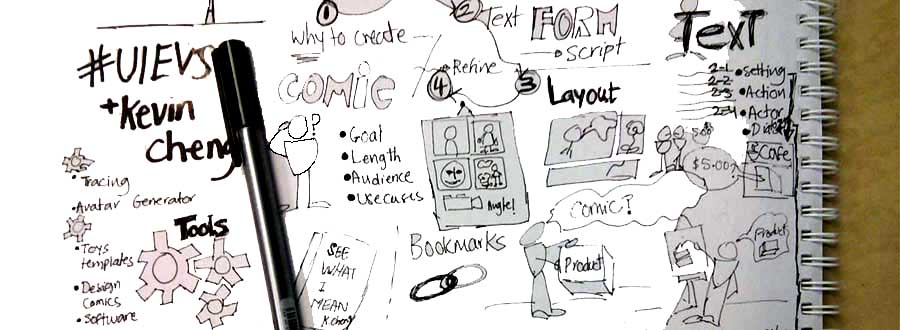 #UIEVS
+Kevin
cheng
Tracing
Avatar Generator
Tools
Toys
templates
Design
Comics
Software
1
why to create
COMIC
?
Goal
Length
Audience
Usecases
SEE
WHAT
I
MEAN
K.Cheng
2
Text FORM
Script
Refine
4
3
Layout
Angle!
Bookmarks
Comic?
Product
Text
2-1 Setting
2-2
2-3 Action
2-4 Actor
$5.00
Cafe
Product